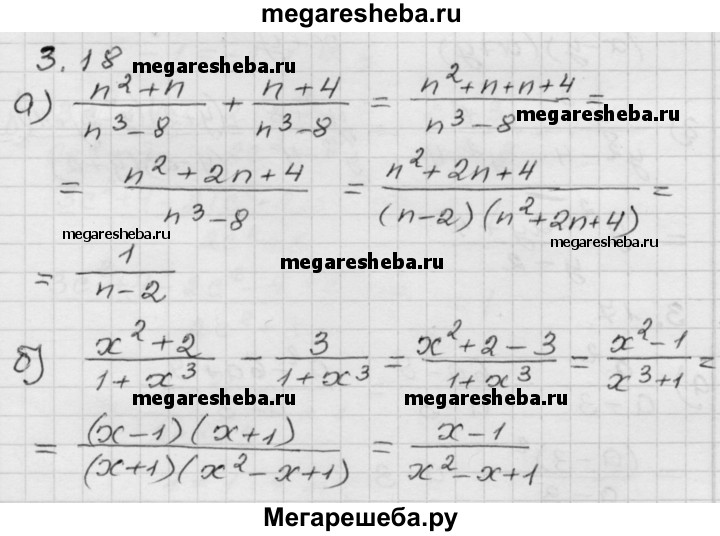 megaresheba.ru
3.18
megaresheba.ru
а) (n²+n)/(n³-8) + (n+4)/(n³-8) = (n²+n+n+4)/(n³-8) =
megaresheba.ru
= (n²+2n+4)/(n³-8) = (n²+2n+4)/((n-2)(n²+2n+4)) =
megaresheba.ru megaresheba.ru
= 1/(n-2)
megaresheba.ru
б) (x²+2)/(1+x³) - 3/(1+x³) = (x²+2-3)/(1+x³) = (x²-1)/(x³+1) =
megaresheba.ru megaresheba.ru
= ((x-1)(x+1))/((x+1)(x²-x+1)) = (x-1)/(x²-x+1)
Мегарешеба.ру